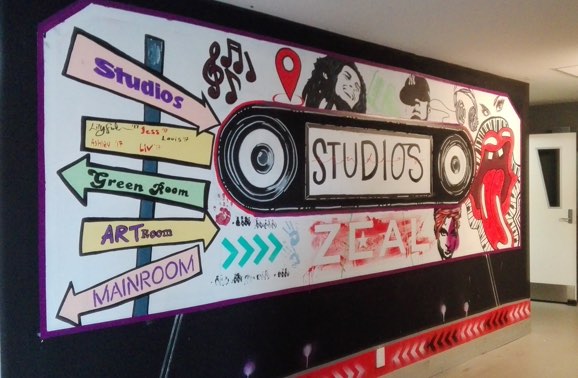 Studios
Jess
Louis
Ashley '17 Liv
Green Room
ART Room
MAINROOM
STUDIOS
ZEAL